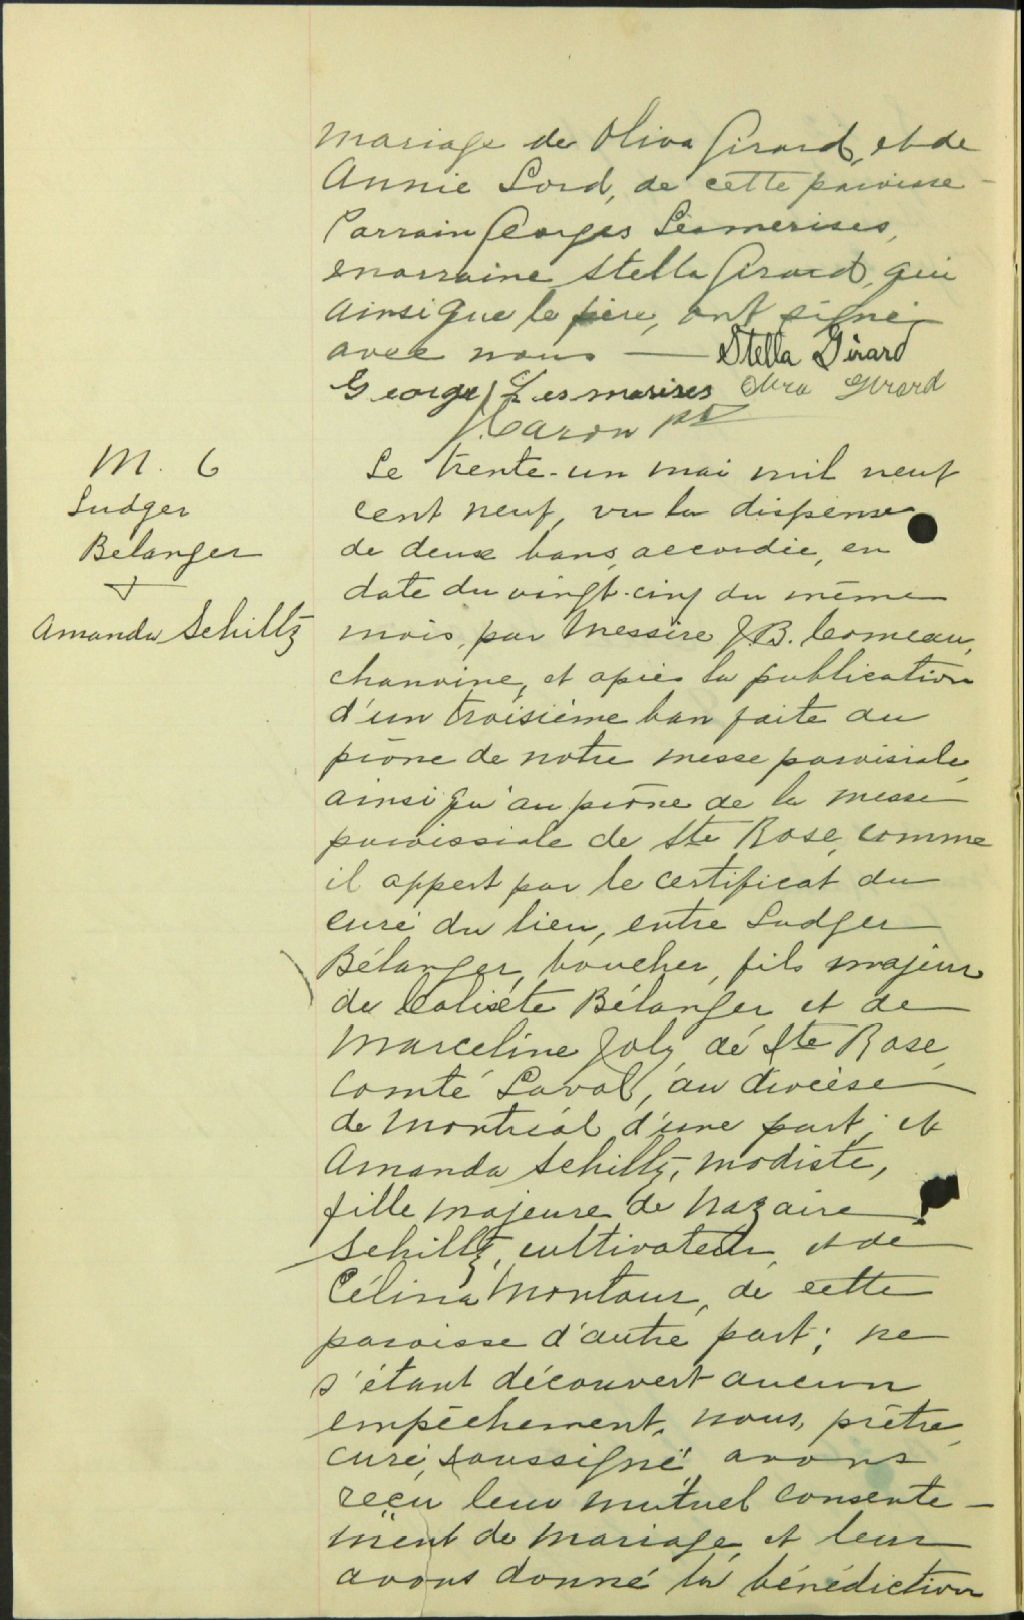 mariage de Oliva Girard, et de
Annie Lord, de cette paroisse -
Parrain Georges Lesmerises,
marraine Stella Girard, qui
ainsi que le père, ont signé
avec nous — Stella Girard
George Lesmerises Oliva Girard
J. Caron ptr
M. 6
Ludger
Belanger
+
Amanda Schiltz
Le trente-un mai mil neuf
cent neuf, vu la dispense
de deux bans, accordée, en
date du vingt-cinq du même
mois, par Messire J.B. Comeau,
chanoine, et après la publication
d'un troisième ban faite au
prône de notre messe paroissiale,
ainsi qu'au prône de la messe
paroissiale de Ste Rose, comme
il appert par le certificat du
curé du lieu, entre Ludger
Bélanger, boucher, fils majeur
de Calixte Bélanger et de
Marceline Joly, de Ste Rose,
comté Laval, au diocèse
de Montréal d'une part; et
Amanda Schiltz, modiste,
fille majeure de Nazaire
Schiltz, cultivateur, et de
Célina Montour, de cette
paroisse d'autre part; ne
s'étant découvert aucun
empêchement, nous, prêtre,
curé, soussigné, avons
reçu leur mutuel consente-
ment de mariage et leur
avons donné la bénédiction